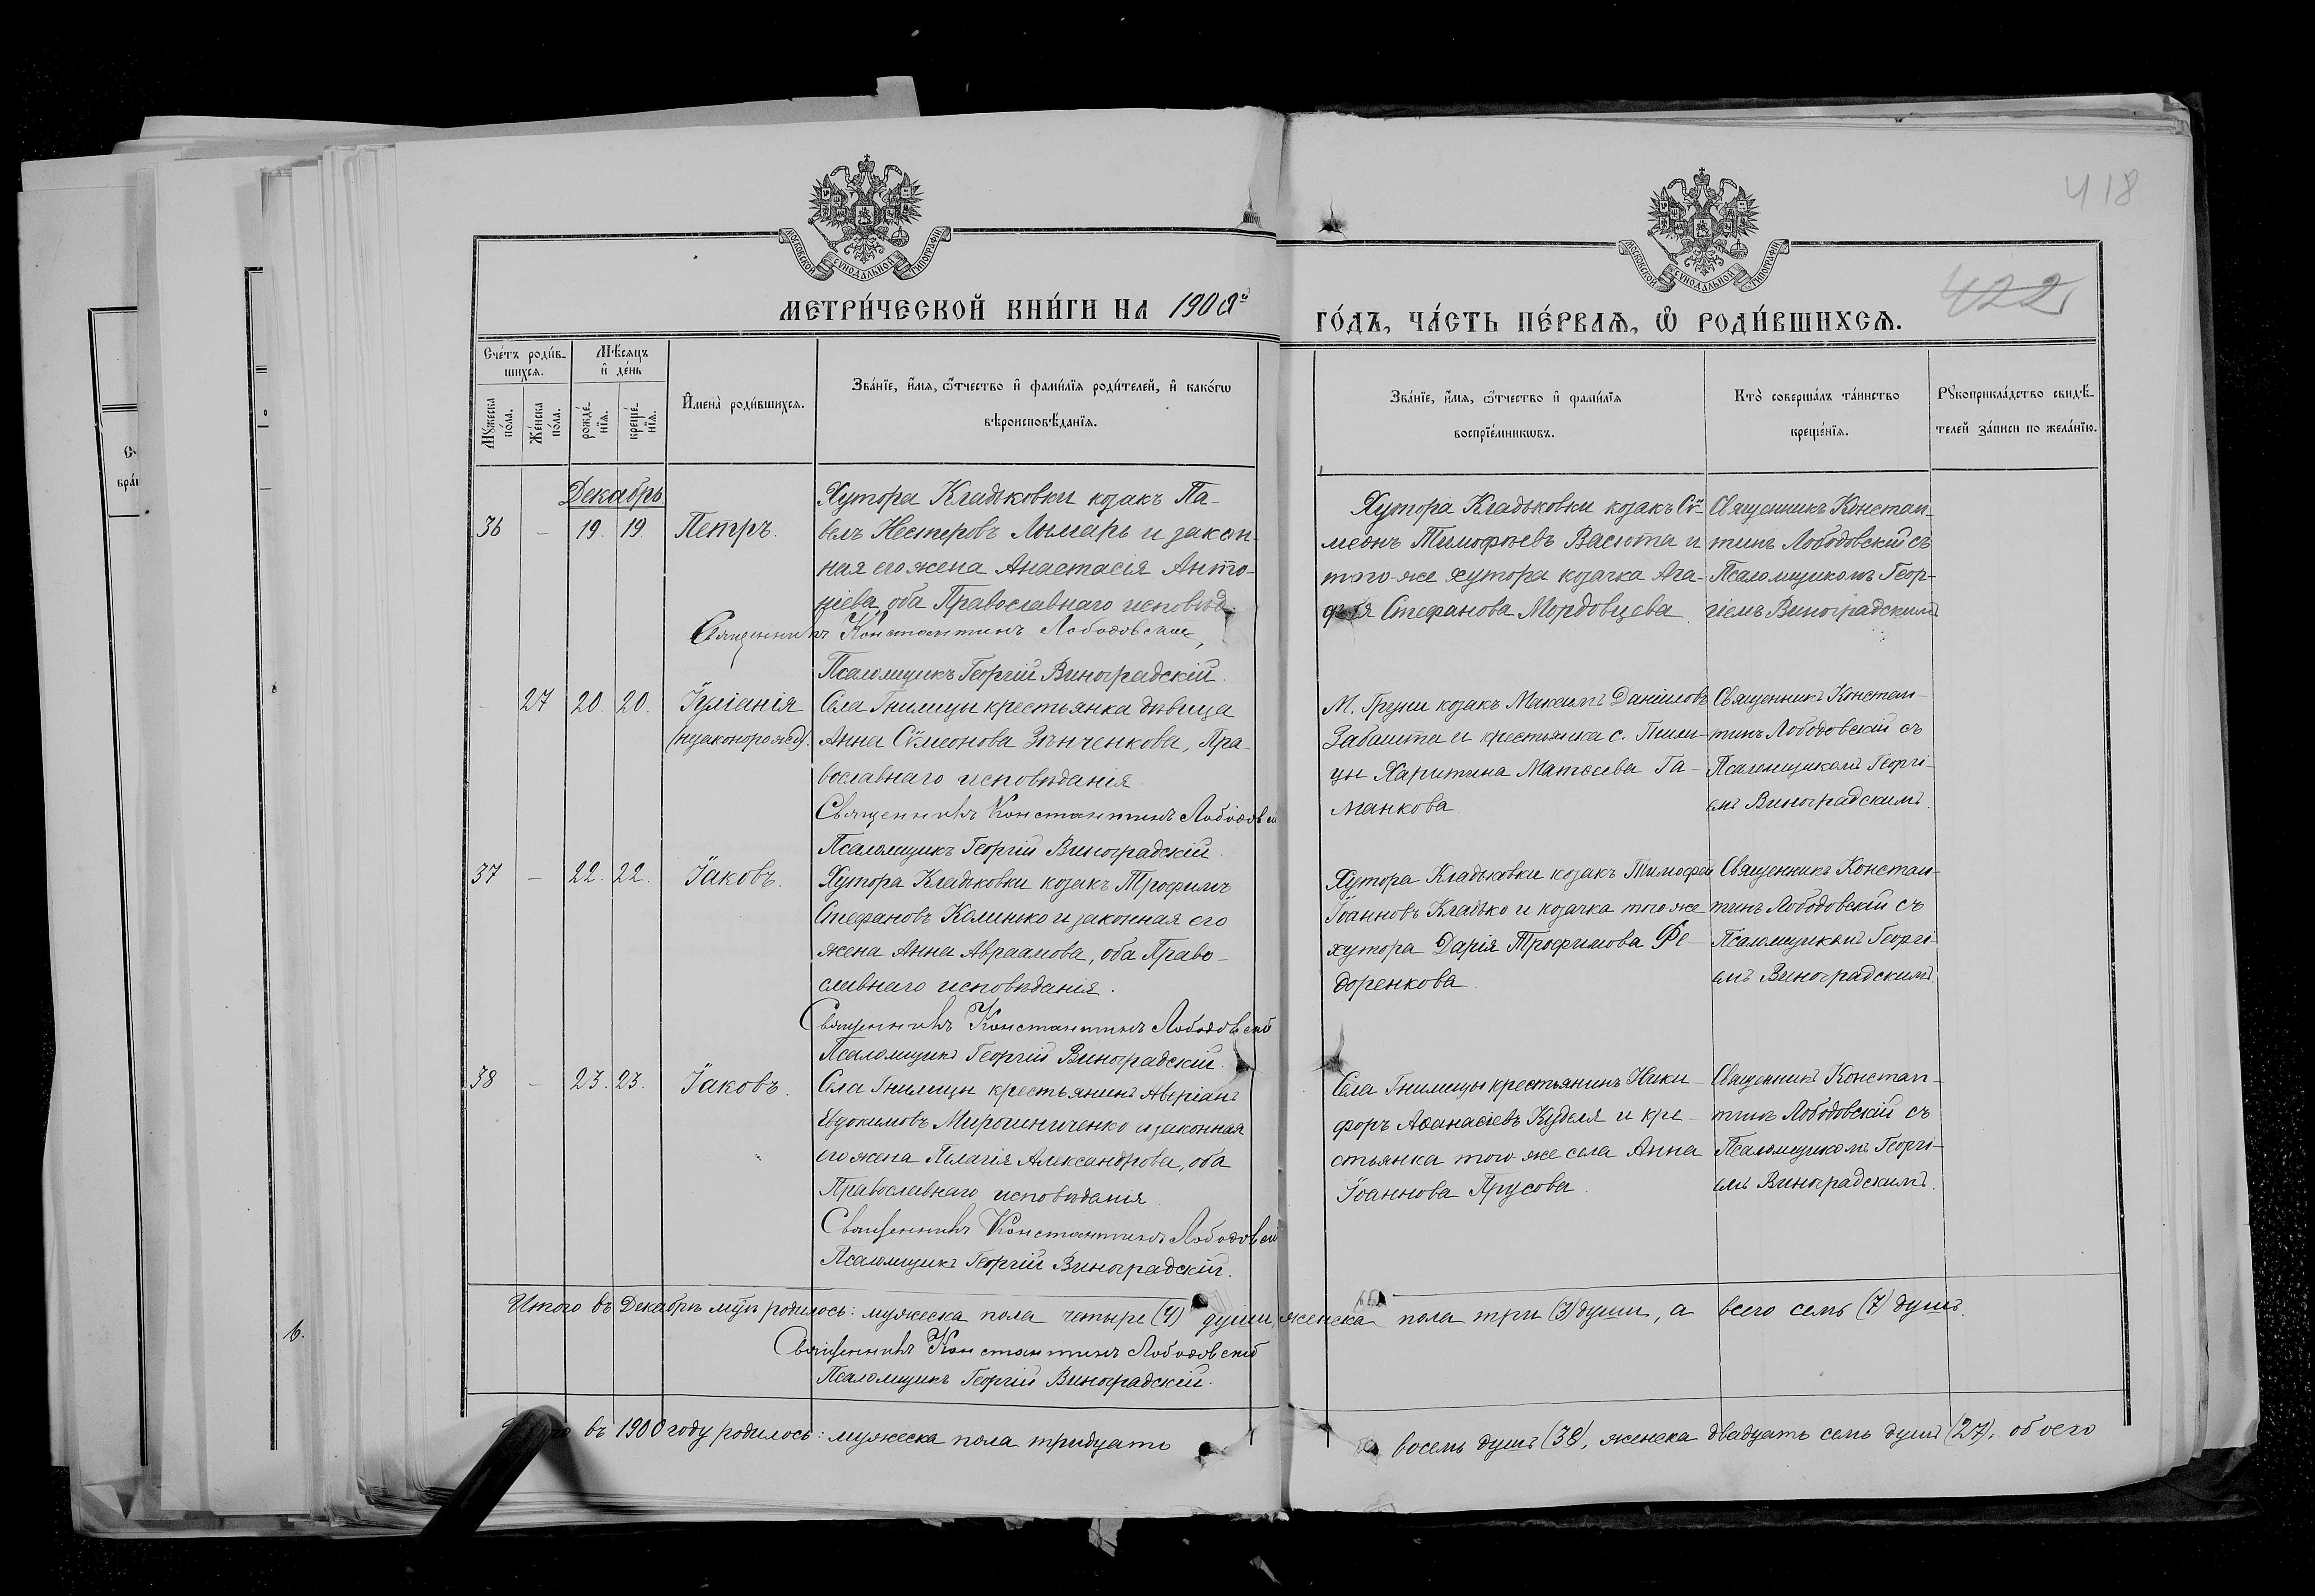 418
422
МОСКОВСКОЙ СѴНОДАЛЬНОЙ ТИПОГРАФІИ
МОСКОВСКОЙ СѴНОДАЛЬНОЙ ТИПОГРАФІИ
МЕТРИ́ЧЕСКОЙ КНИ́ГИ НА 1900й
ГО́ДЪ, ЧА́СТЬ ПЕ́РВАѦ, Ѡ҆ РОДИ́ВШИХСѦ.
Сче́тъ роди́в-
шихсѧ.
Мꙋжеска по́ла.
Же́нска по́ла.
Мѣ́сѧцъ
и҆ де́нь
рожде́-
нїѧ.
креще́-
нїѧ.
И҆мена̀ роди́вшихсѧ.
Зва́нїе, и҆́мѧ, ѻ҆́тчество и҆ фами́лїѧ роди́телей, и҆ како́гѡ
вѣроисповѣ́данїѧ.
Зва́нїе, и҆́мѧ, ѻ҆́тчество и҆ фами́лїѧ
воспрїе́мникѡвъ.
Кто̀ соверша́лъ та́инство
креще́нїѧ.
Рꙋкоприкла́дство свидѣ́-
телей за́писи по жела́нїю.
Декабрь
36 – 19. 19. Петръ.
Хутора Кладьковки козакъ Па-
велъ Нестеровъ Лымарь и закон-
ная его жена Анастасія Анто-
ніева, оба Православнаго исповѣд.
Священникъ Константинъ Лободовскій,
Псаломщикъ Георгій Виноградскій.
Хутора Кладьковки козакъ Сѵ-
меонъ Тимофѣевъ Васюта и
того-же хутора козачка Ага-
фія Стефанова Мордовцева.
Священникъ Констан-
тинъ Лободовскій съ
Псаломщикомъ Геор-
гіемъ Виноградскимъ
– 27 20. 20. Іуліанія
(незаконорожд).
Села Гнилицы крестьянка дѣвица
Анна Сѵмеонова Зѣнченкова, Пра-
вославнаго исповѣданія.
Священникъ Константинъ Лободовскій
Псаломщикъ Георгій Виноградскій.
М. Груни козакъ Максимъ Даніиловъ
Забашта и крестьянка с. Гнили-
цы Харитина Матѳеева Га-
манкова
Священникъ Констан-
тинъ Лободовскій съ
Псаломщикомъ Георгі-
емъ Виноградскимъ.
37 – 22. 22. Іаковъ.
Хутора Кладьковки козакъ Трофимъ
Стефановъ Калинько и законная его
жена Анна Авраамова, оба Право-
славнаго исповѣданія.
Священникъ Константинъ Лободовскій
Псаломщикъ Георгій Виноградскій.
Хутора Кладьковки козакъ Тимофей
Іоанновъ Кладько и козачка того же
хутора Дарія Трофимова Фе-
доренкова.
Священникъ Констан-
тинъ Лободовскій съ
Псаломщикомъ Георгі-
емъ Виноградскимъ.
38 – 23. 23. Іаковъ.
Села Гнилицы крестьянинъ Аверіанъ
Евдокимовъ Мирошниченко и законная
его жена Пелагія Александрова, оба
Православнаго исповѣданія.
Священникъ Константинъ Лободовскій
Псаломщикъ Георгій Виноградскій.
Села Гнилицы крестьянинъ Ники-
форъ Аѳанасіевъ Куделя и кре-
стьянка того-же села Анна
Іоаннова Прусова.
Священникъ Констан-
тинъ Лободовскій съ
Псаломщикомъ Георгі-
емъ Виноградскимъ.
Итого въ Декабрѣ м̃цѣ родилось: мужеска пола четыре (4) души, женска пола три (3) души, а всего семь (7) душъ.
Священникъ Константинъ Лободовскій
Псаломщикъ Георгій Виноградскій.
въ 1900 году родилось: мужеска пола тридцать восемь душъ (38), женска двадцать семь душъ (27), обоего